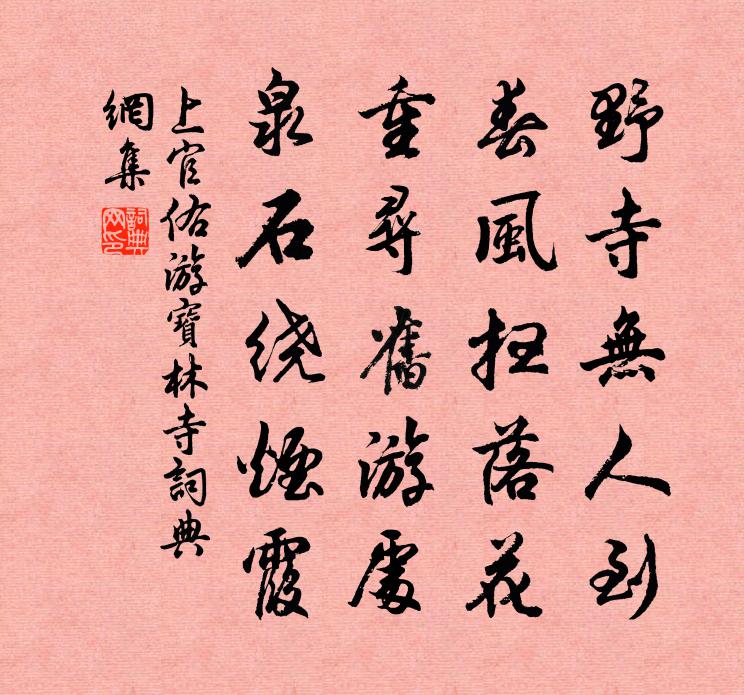 野寺無人到
春風扫落花
重尋舊游處
泉石绕煙霞
上官佑游寶林寺詞典
網集
詞典
网印